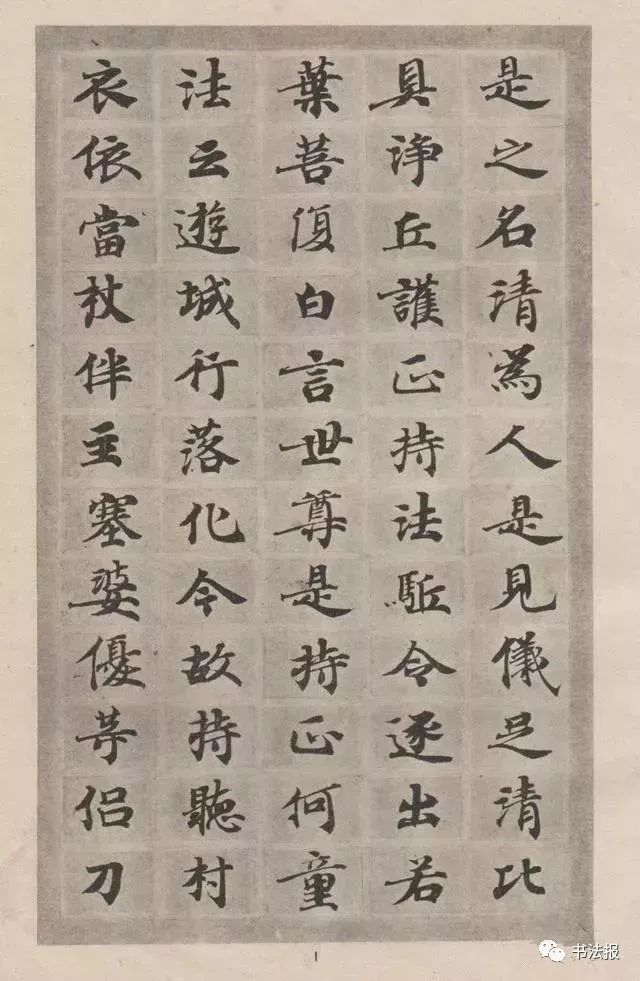 是之名清為人是見儀足清比
具淨丘護正持法駈令逐出若
葉菩復白言世尊是持正何童
法云遊城行落化令故持聽村
衣依當杖伴主塞婆優等侶刀
1
书法报